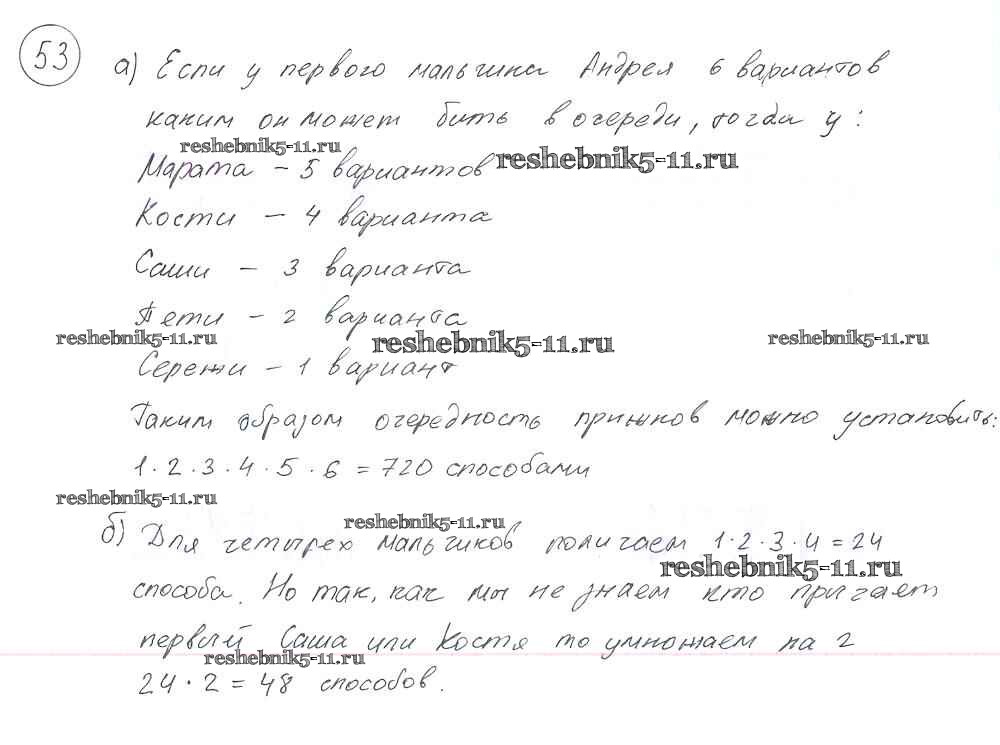 53
а) Если у первого мальчика Андрея 6 вариантов
каким он может быть в очереди, тогда у:
reshebnik5-11.ru
reshebnik5-11.ru
Марата - 5 вариантов
Кости - 4 варианта
Саши - 3 варианта
Пети - 2 варианта
reshebnik5-11.ru
reshebnik5-11.ru
reshebnik5-11.ru
Сережи - 1 вариант
Таким образом очередность прыжков можно установить:
1 · 2 · 3 · 4 · 5 · 6 = 720 способами
reshebnik5-11.ru
reshebnik5-11.ru
б) Для четырех мальчиков получаем 1 · 2 · 3 · 4 = 24
reshebnik5-11.ru
способа. Но так, как мы не знаем кто прыгает
первый Саша или Костя то умножаем на 2
reshebnik5-11.ru
24 · 2 = 48 способов.